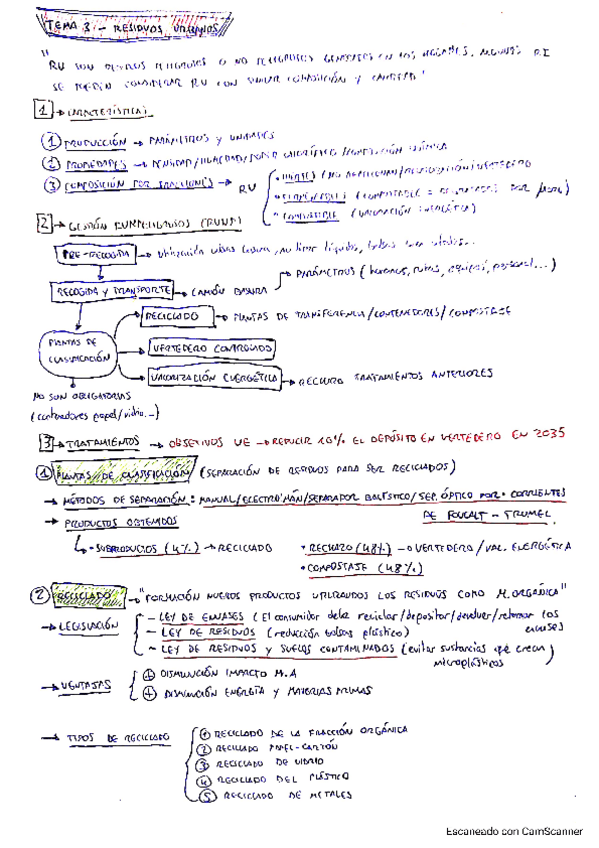 TEMA 3 - RESIDUOS URBANOS
"RU SON RESIDUOS PELIGROSOS O NO PELIGROSOS GENERADOS EN LOS HOGARES. ALGUNOS RI
SE PUEDEN CONSIDERAR RU CON SIMILAR COMPOSICIÓN Y CANTIDAD"
1 → CARACTERÍSTICAS
① PRODUCCIÓN → PARÁMETROS Y UNIDADES
② PROPIEDADES → DENSIDAD/HUMEDAD/PODER CALORÍFICO/COMPOSICIÓN QUÍMICA
③ COMPOSICIÓN POR FRACCIONES → RU
• INERTE (NO /VERTEDERO
(COMPOSTABLE = DEGRADABLES POR
• COMBUSTIBLE (VALORACIÓN ENERGÉTICA)
2 → GESTIÓN
PRE-RECOGIDA → utilización bolsas basura, no tirar líquidos,
RECOGIDA Y TRANSPORTE → CAMIÓN BASURA → PARÁMETROS (horarios, rutas, equipos, personal...)
PLANTAS DE CLASIFICACIÓN
RECICLADO → PLANTAS DE TRANSFERENCIA/CONTENEDORES/COMPOSTAJE
VERTEDERO CONTROLADO
VALORIZACIÓN ENERGÉTICA → RECHAZO TRATAMIENTOS ANTERIORES
NO SON OBLIGATORIAS
(contenedores papel/vidrio...)
3 → TRATAMIENTOS → OBJETIVOS UE → REDUCIR 10% EL DEPÓSITO EN VERTEDERO EN 2035
① PLANTAS DE CLASIFICACIÓN (SEPARACIÓN DE RESIDUOS PARA SER RECICLADOS)
→ MÉTODOS DE SEPARACIÓN: MANUAL/ELECTROIMÁN/SEPARADOR BALÍSTICO/SEP. ÓPTICO POR CORRIENTES
DE FOUCALT - TRUMEL
→ PRODUCTOS OBTENIDOS
• SUBPRODUCTOS (4%) → RECICLADO
• RECHAZO (48%) → VERTEDERO/VAL. ENERGÉTICA
• COMPOSTAJE (48%)
② RECICLADO → "FORMACIÓN NUEVOS PRODUCTOS UTILIZANDO LOS RESIDUOS COMO M.ORGÁNICA"
→ LEGISLACIÓN
- LEY DE ENVASES (El consumidor debe reciclar/depositar/devolver/retornar los envases
- LEY DE RESIDUOS (reducción bolsas plástico)
- LEY DE RESIDUOS Y SUELOS CONTAMINADOS (evitar sustancias que crean microplásticos)
→ VENTAJAS
⊕ DISMINUCIÓN IMPACTO M.A
⊕ DISMINUCIÓN ENERGÍA Y MATERIAS PRIMAS
→ TIPOS DE RECICLADO
① RECICLADO DE LA FRACCIÓN ORGÁNICA
② RECICLADO PAPEL-CARTÓN
③ RECICLADO DE VIDRIO
④ RECICLADO DEL PLÁSTICO
⑤ RECICLADO DE METALES
Escaneado con CamScanner